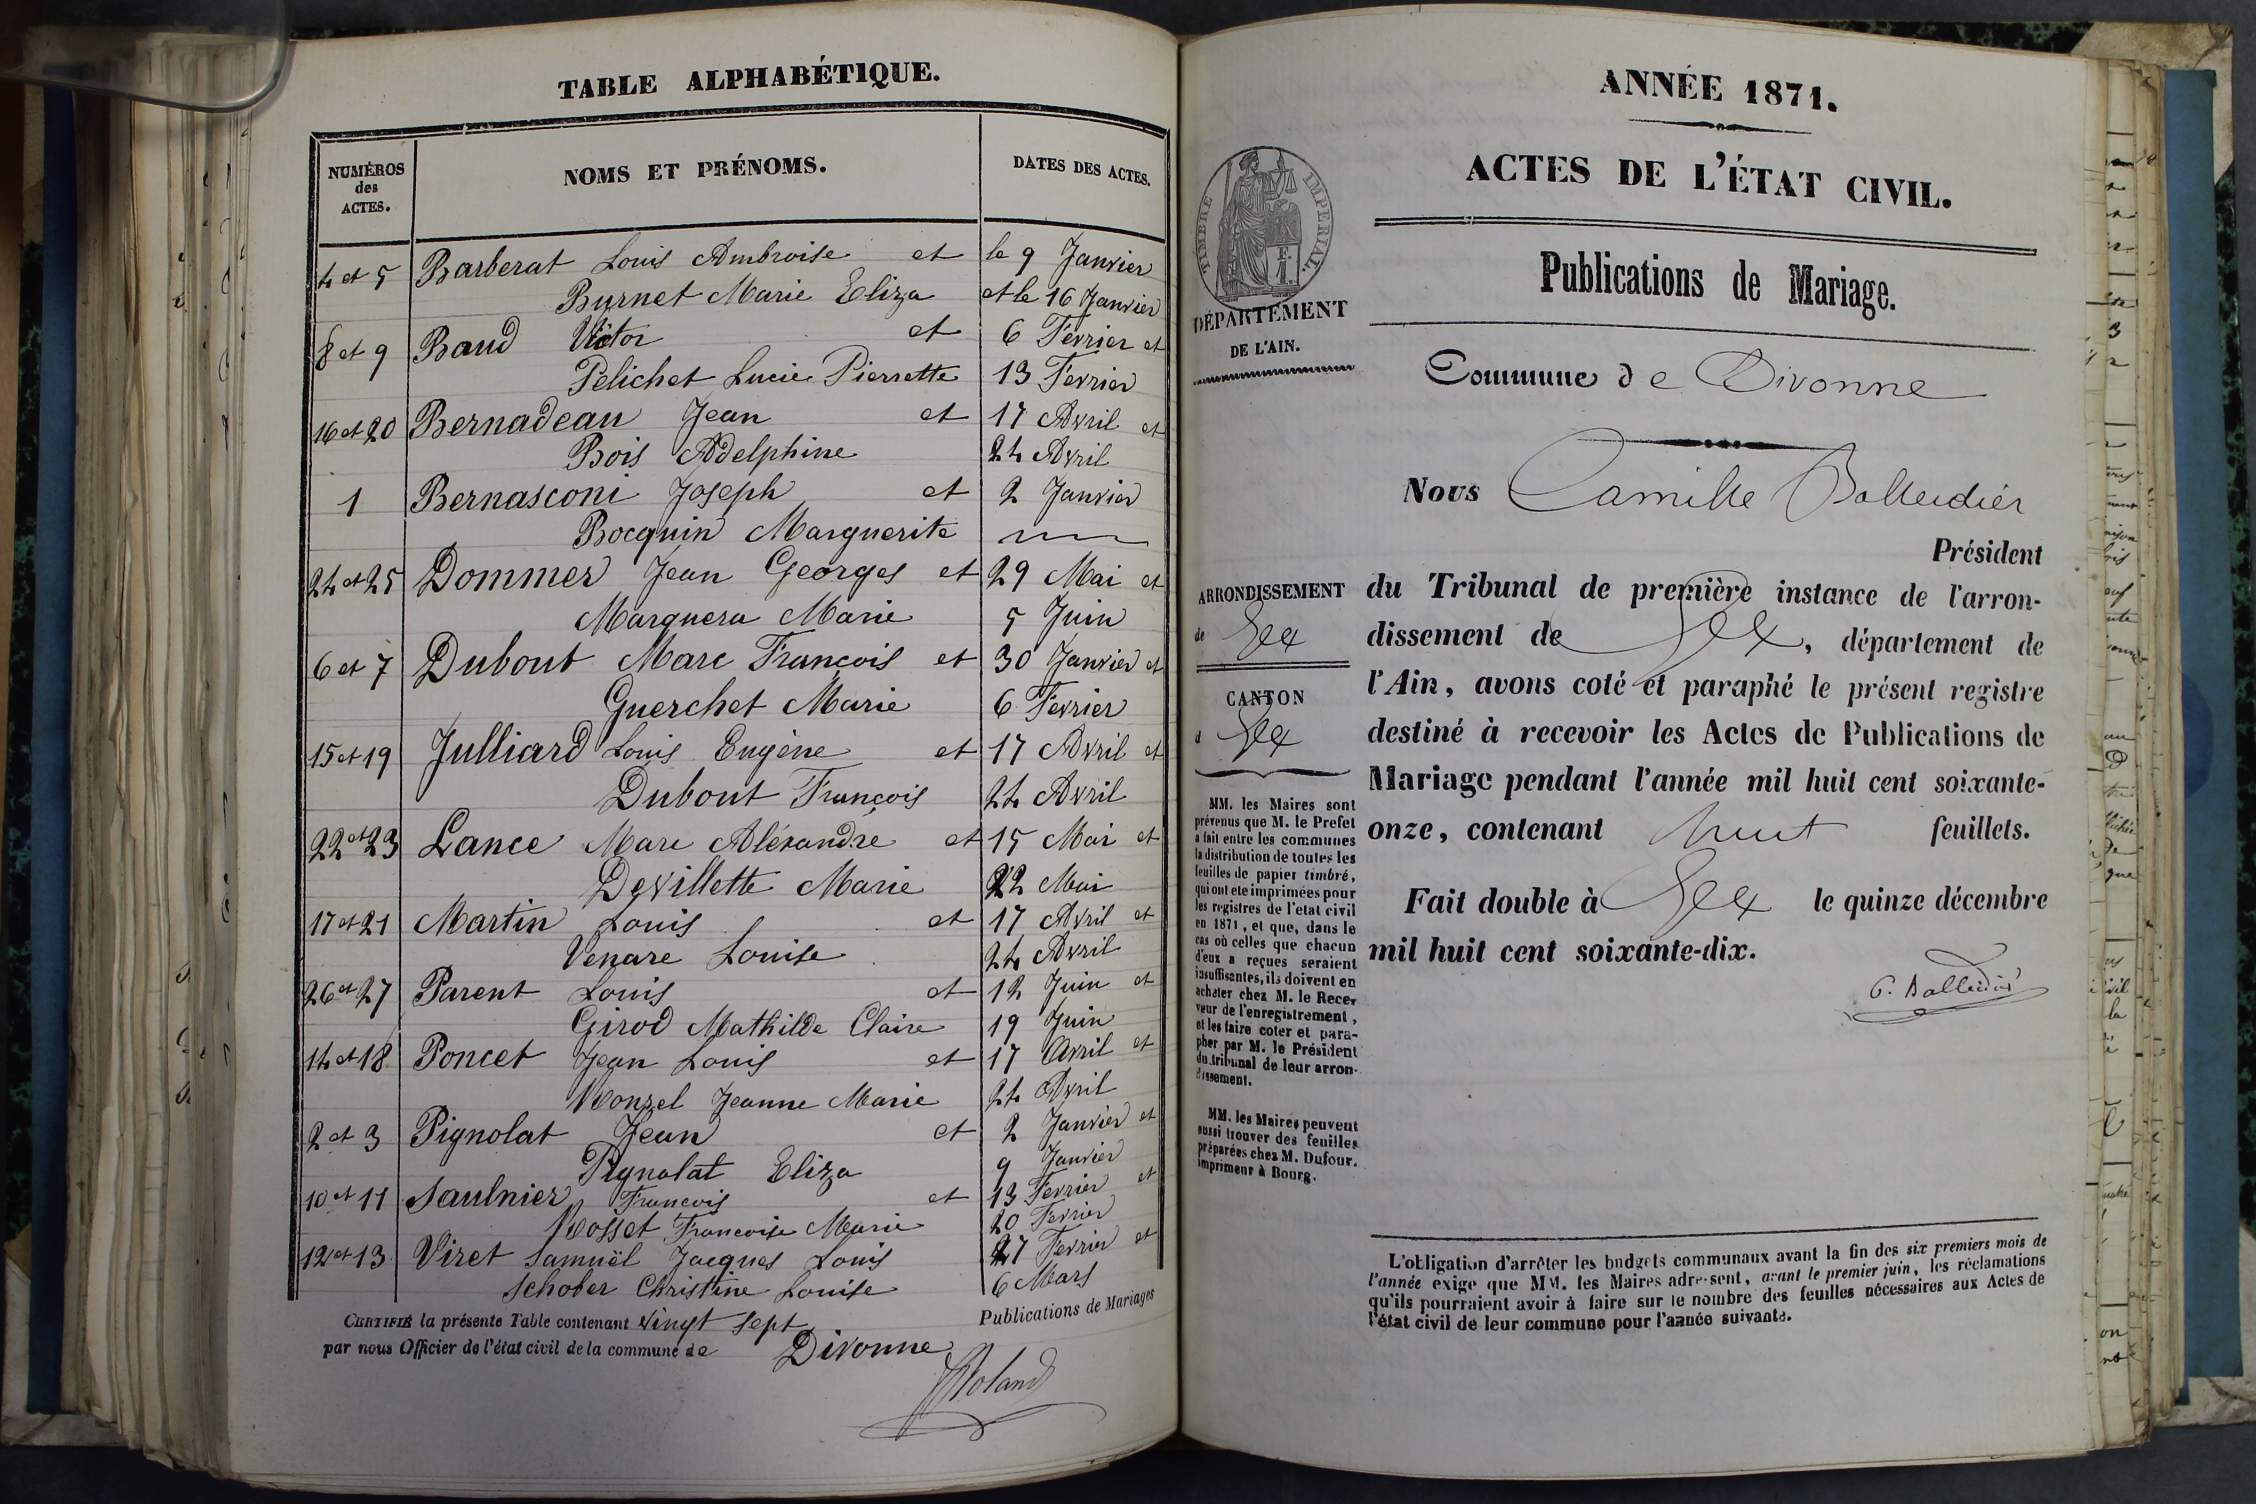 TABLE ALPHABÉTIQUE.
NUMÉROS des ACTES. NOMS ET PRÉNOMS. DATES DES ACTES.
4 et 5 Barberat Louis Ambroise et le 9 Janvier
Burnet Marie Eliza et le 16 Janvier
8 et 9 Baud Victor et 6 Fevrier et
Pelichet Lucie Pierrette 13 Fevrier
16 et 20 Bernadeau Jean et 17 Avril et
Bois Adelphine 24 Avril
1 Bernasconi Joseph et 2 Janvier
Bocquin Marguerite
24 et 25 Dommer Jean Georges et 29 Mai et
Marquera Marie 5 Juin
6 et 7 Dubout Marc François et 30 Janvier et
Guerchet Marie 6 Fevrier
15 et 19 Julliard Louis Eugène et 17 Avril et
Dubout François 24 Avril
22 et 23 Lance Marc Aléxandre et 15 Mai et
Devillette Marie 22 Mai
17 et 21 Martin Louis et 17 Avril et
Venare Louise 24 Avril
26 et 27 Parent Louis et 12 Juin et
Girod Mathilde Claire 19 Juin
14 et 18 Poncet Jean Louis et 17 Avril et
Jeanne Marie 24 Avril
2 et 3 Pignolat Jean et 2 Janvier et
Pignolat Eliza 9 Janvier
10 et 11 Saulnier François et 13 Fevrier et
Rosset Françoise Marie 20 Fevrier
12 et 13 Viret Samuël Jacques Louis 27 Fevrier et
Schober Christine Louise 6 Mars
CERTIFIÉ la présente Table contenant vingt sept Publications de Mariages
par nous Officier de l'état civil de la commune de Divonne
Roland
ANNÉE 1871.
ACTES DE L'ÉTAT CIVIL.
TIMBRE IMPERIAL.
DÉPARTEMENT
DE L'AIN.
Publications de Mariage.
Commune de Divonne
Nous Camille Balleidier
Président
ARRONDISSEMENT
de Gex
CANTON
d Gex
du Tribunal de première instance de l'arron-
dissement de Gex, département de
l'Ain, avons coté et paraphé le présent registre
destiné à recevoir les Actes de Publications de
Mariage pendant l'année mil huit cent soixante-
onze, contenant huit feuillets.
Fait double à Gex le quinze décembre
mil huit cent soixante-dix.
C. Balleidier
MM. les Maires sont
prévenus que M. le Prefet
a fait entre les communes
la distribution de toutes les
feuilles de papier timbré,
qui ont ete imprimées pour
les registres de l'etat civil
en 1871, et que, dans le
cas où celles que chacun
d'eux a reçues seraient
insuffisantes, ils doivent en
acheter chez M. le Rece-
veur de l'enregistrement,
et les faire coter et para-
pher par M. le Président
du tribunal de leur arron-
dissement.
MM. les Maires peuvent
aussi trouver des feuilles
préparées chez M. Dufour,
imprimeur à Bourg.
L'obligation d'arrêter les budgets communaux avant la fin des six premiers mois de
l'année exige que MM. les Maires adressent, avant le premier juin, les réclamations
qu'ils pourraient avoir à faire sur le nombre des feuilles nécessaires aux Actes de
l'état civil de leur commune pour l'année suivante.